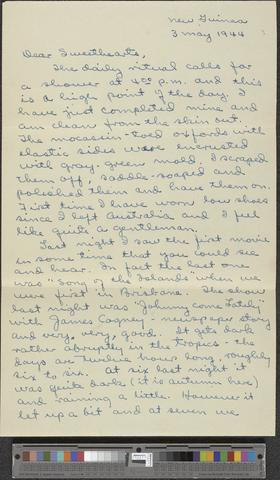 New Guinea
3 May 1944
Dear Sweethearts,
The daily ritual calls for
a shower at 4:00 p.m. and this
is a high point of the day. I
have just completed mine and
am clean from the skin out.
The moccasin-toed oxfords with
elastic sides were encrusted
with gray-green mold. I scraped
them off, saddle-soaped and
polished them and have them on.
First time I have worn low shoes
since I left Australia and I feel
like quite a gentleman.
Last night I saw the first movie
in some time that you could see
and hear. In fact the last one
was "Song of the Islands" when we
were first in Brisbane. The show
last night was "Johnny Come Lately"
with James Cagney - newspaper story
and very, very, good. It gets dark
rather abruptly in the tropics - the
days are twelve hours long, roughly
six to six. At six last night it
was quite dark (it is autumn here)
and raining a little. However it
let up a bit and at seven we